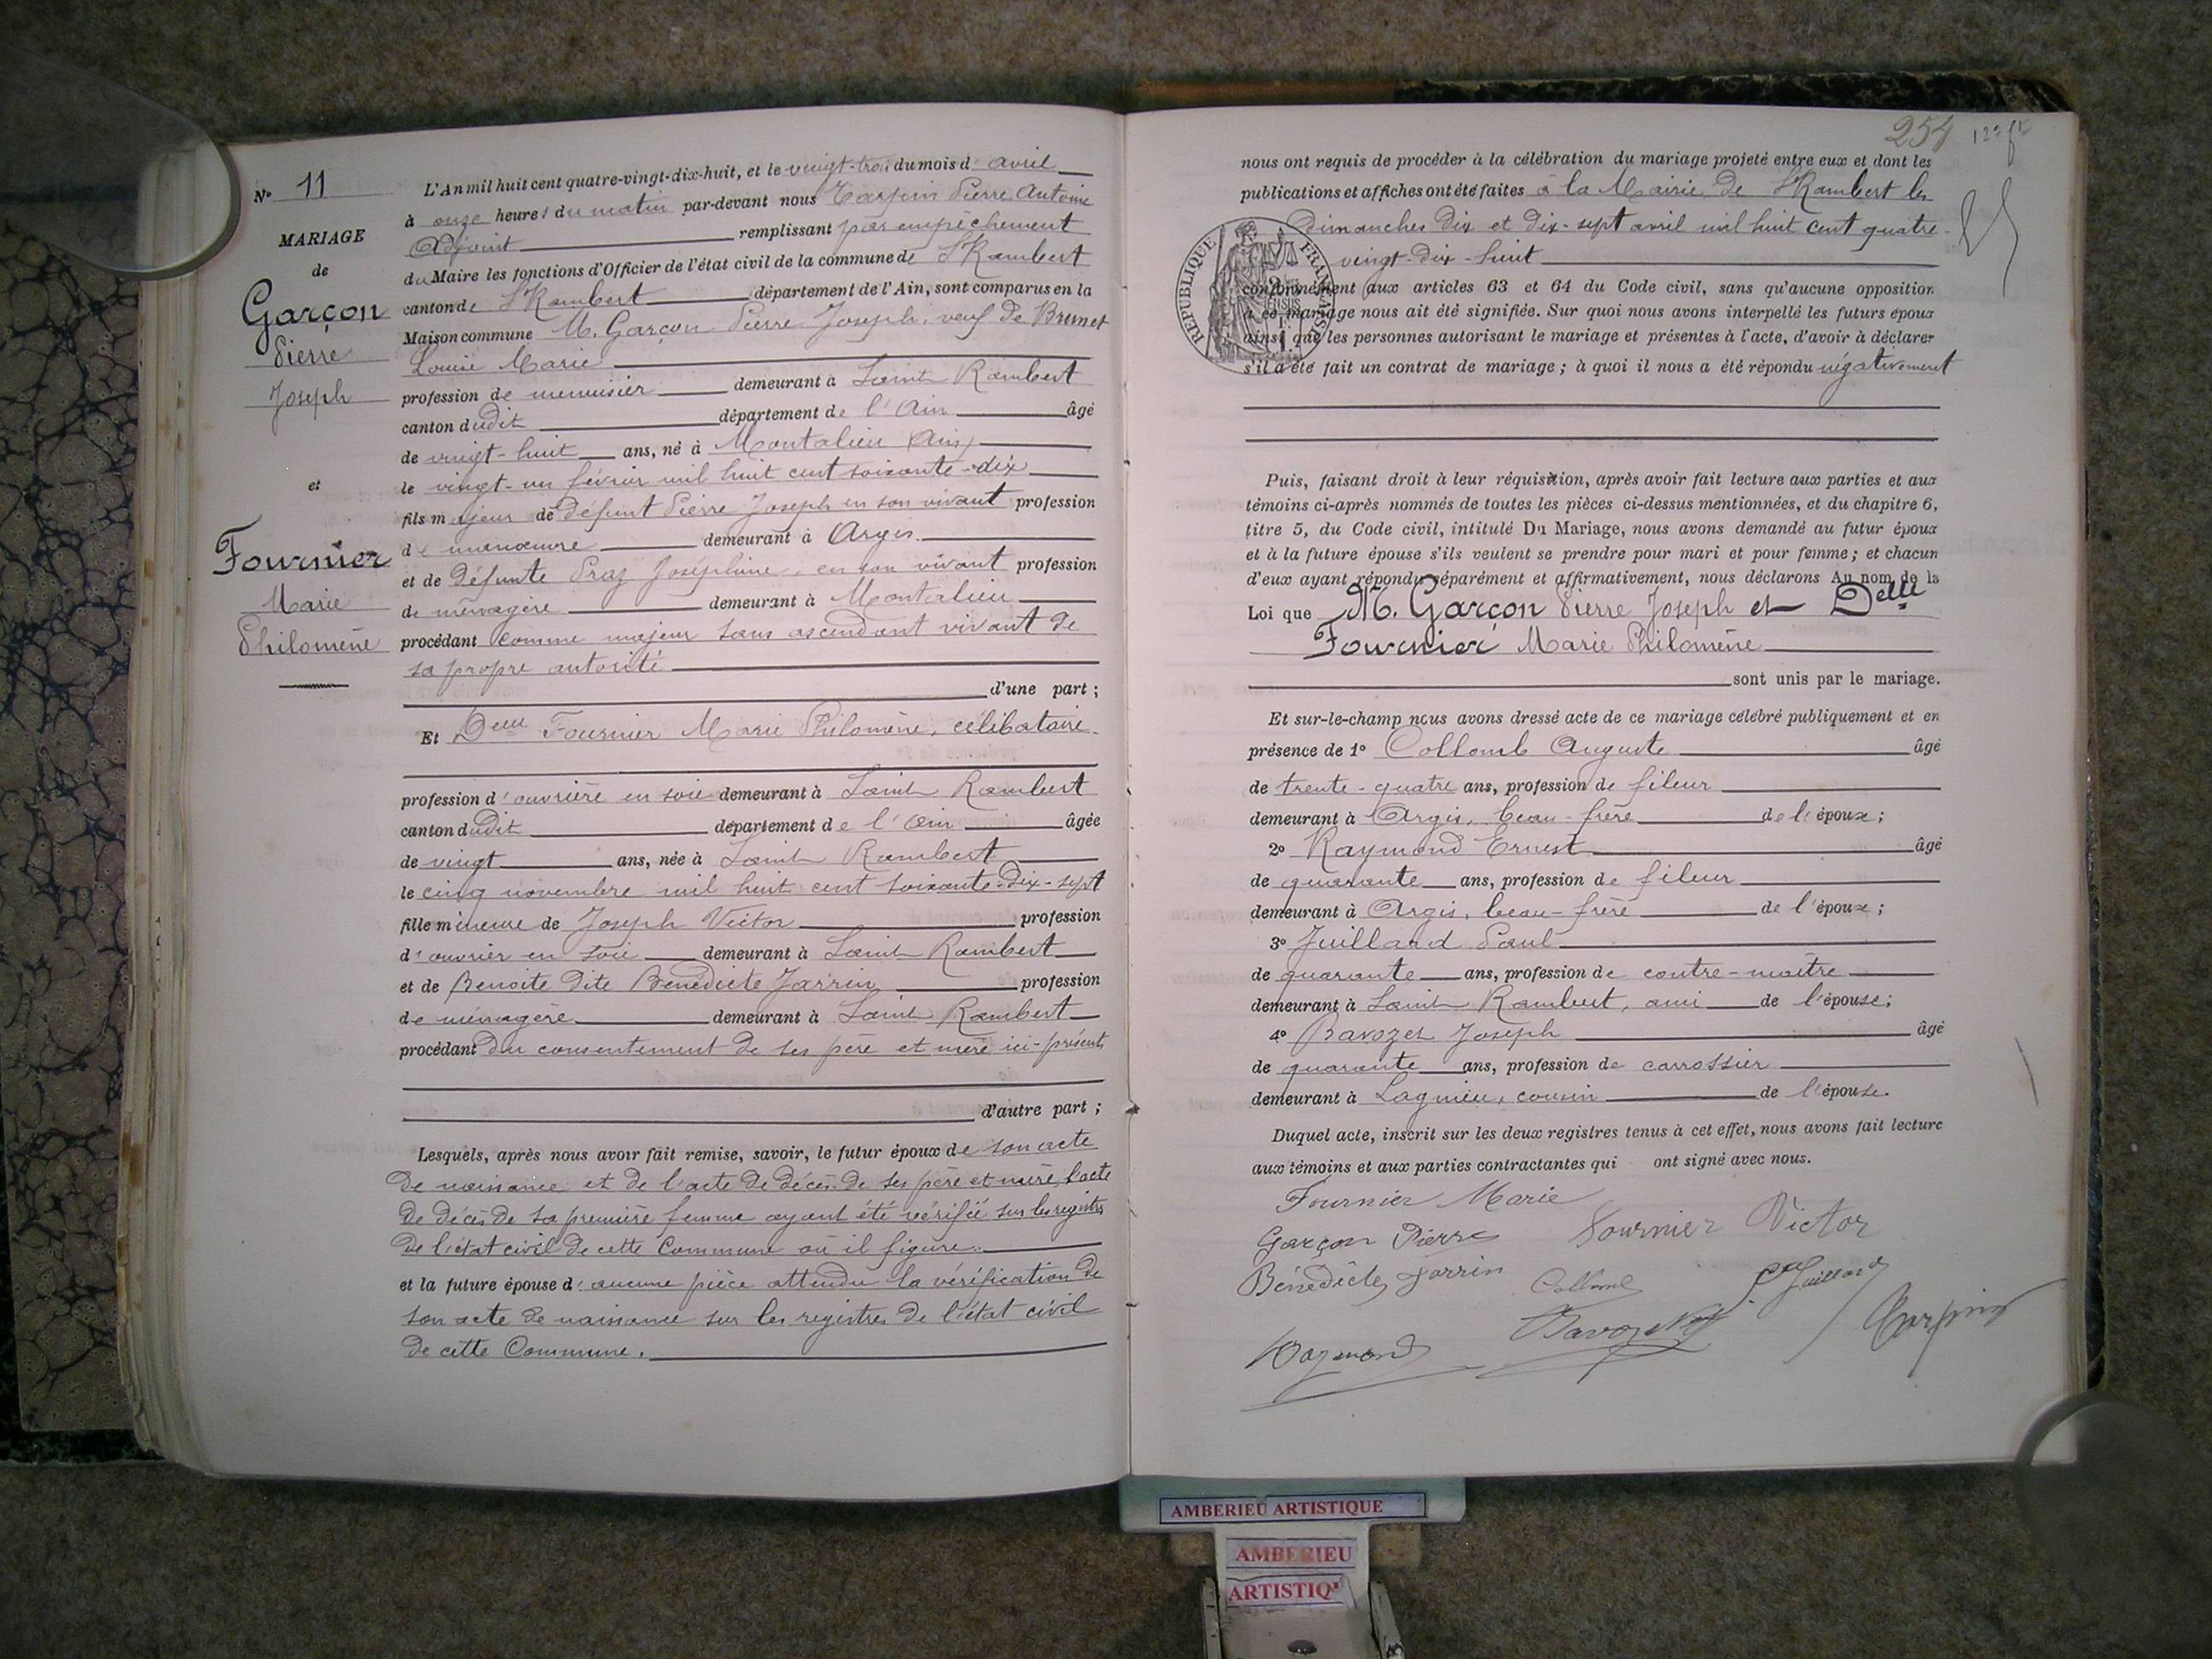 N° 11
MARIAGE
de
Garçon
Pierre
Joseph
et
Fournier
Marie
Philomène
L'An mil huit cent quatre-vingt-dix-huit, et le vingt-trois du mois d'avril
à onze heures du matin par-devant nous Tarpin Pierre Antoine
Adjoint remplissant par empêchement
du Maire les fonctions d'Officier de l'état civil de la commune de St Rambert
canton de St Rambert département de l'Ain, sont comparus en la
Maison commune M. Garçon Pierre Joseph, veuf de Brunet
Louise Marie
profession de menuisier demeurant à Saint Rambert
canton dudit département de l'Ain âgé
de vingt-huit ans, né à Montalieu (Ain)
le vingt-un février mil huit cent soixante-dix
fils majeur de défunt Pierre Joseph en son vivant profession
de manoeuvre demeurant à Argis
et de défunte Praz Joséphine, en son vivant profession
de ménagère demeurant à Montalieu
procédant comme majeur sans ascendant vivant de
sa propre autorité
d'une part ;
Et Delle Fournier Marie Philomène, célibataire
profession d'ouvrière en soie demeurant à Saint Rambert
canton dudit département de l'Ain âgée
de vingt ans, née à Saint Rambert
le cinq novembre mil huit cent soixante-dix-sept
fille mineure de Joseph Victor profession
d'ouvrier en soie demeurant à Saint Rambert
et de Benoite dite Bénédicte Jarrin profession
de ménagère demeurant à Saint Rambert
procédant du consentement de ses père et mère ici-présents
d'autre part ;
Lesquels, après nous avoir fait remise, savoir, le futur époux de son acte
de naissance et de l'acte de décès de ses père et mère, l'acte
de décès de sa première femme ayant été vérifié sur les registres
de l'état civil de cette Commune où il figure.
et la future épouse d'aucune pièce attendu la vérification de
son acte de naissance sur les registres de l'état civil
de cette Commune.
254
nous ont requis de procéder à la célébration du mariage projeté entre eux et dont les
publications et affiches ont été faites à la Mairie de St Rambert les
dimanches dix et dix-sept avril mil huit cent quatre-
vingt-dix-huit
REPUBLIQUE FRANÇAISE
conformément aux articles 63 et 64 du Code civil, sans qu'aucune opposition
à ce mariage nous ait été signifiée. Sur quoi nous avons interpellé les futurs époux
ainsi que les personnes autorisant le mariage et présentes à l'acte, d'avoir à déclarer
s'il a été fait un contrat de mariage ; à quoi il nous a été répondu négativement
Puis, faisant droit à leur réquisition, après avoir fait lecture aux parties et aux
témoins ci-après nommés de toutes les pièces ci-dessus mentionnées, et du chapitre 6,
titre 5, du Code civil, intitulé Du Mariage, nous avons demandé au futur époux
et à la future épouse s'ils veulent se prendre pour mari et pour femme ; et chacun
d'eux ayant répondu séparément et affirmativement, nous déclarons Au nom de la
Loi que M. Garçon Pierre Joseph et Delle
Fournier Marie Philomène
sont unis par le mariage.
Et sur-le-champ nous avons dressé acte de ce mariage célébré publiquement et en
présence de 1° Collomb Auguste âgé
de trente-quatre ans, profession de fileur
demeurant à Argis, beau-frère de l'époux ;
2° Raymond Ernest âgé
de quarante ans, profession de fileur
demeurant à Argis, beau-frère de l'époux ;
3° Juilland Paul
de quarante ans, profession de contre-maître
demeurant à Saint Rambert, ami de l'épouse ;
4° Ravozet Joseph âgé
de quarante ans, profession de carrossier
demeurant à Lagnieu, cousin de l'épouse.
Duquel acte, inscrit sur les deux registres tenus à cet effet, nous avons fait lecture
aux témoins et aux parties contractantes qui ont signé avec nous.
Fournier Marie
Garçon Pierre Fournier Victor
Bénédicte Jarrin Collomb Juilland
Raymond Ravozet Tarpin
AMBERIEU ARTISTIQUE
AMBERIEU
ARTISTIQ